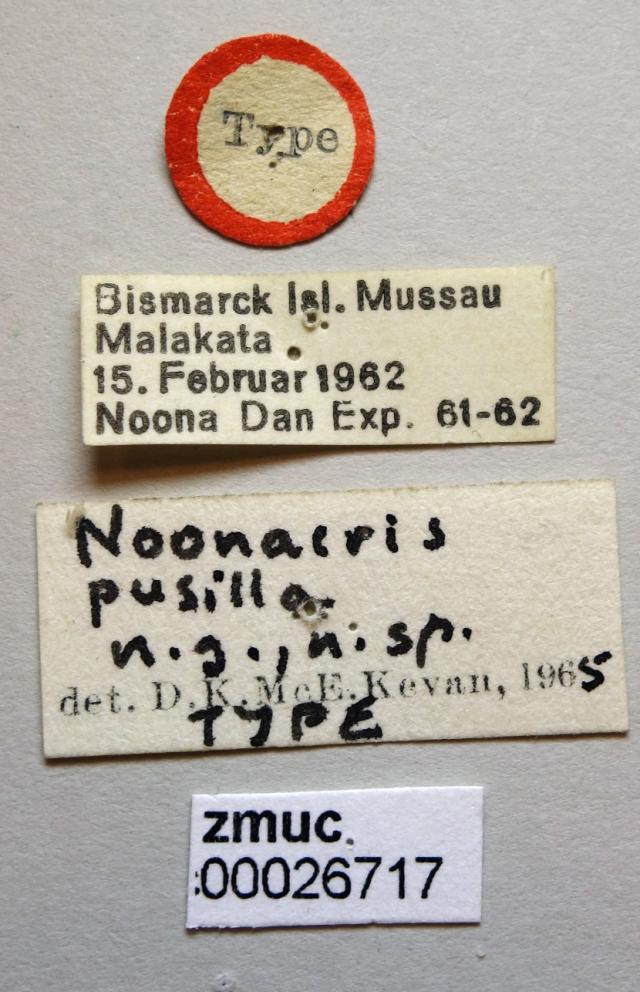 Type
Bismarck Isl. Mussau
Malakata
15. Februar 1962
Noona Dan Exp. 61-62
Noonacris
pusilla
n.g., n.sp.
det. D.K.McE.Kevan, 1965
TYPE
zmuc
:00026717